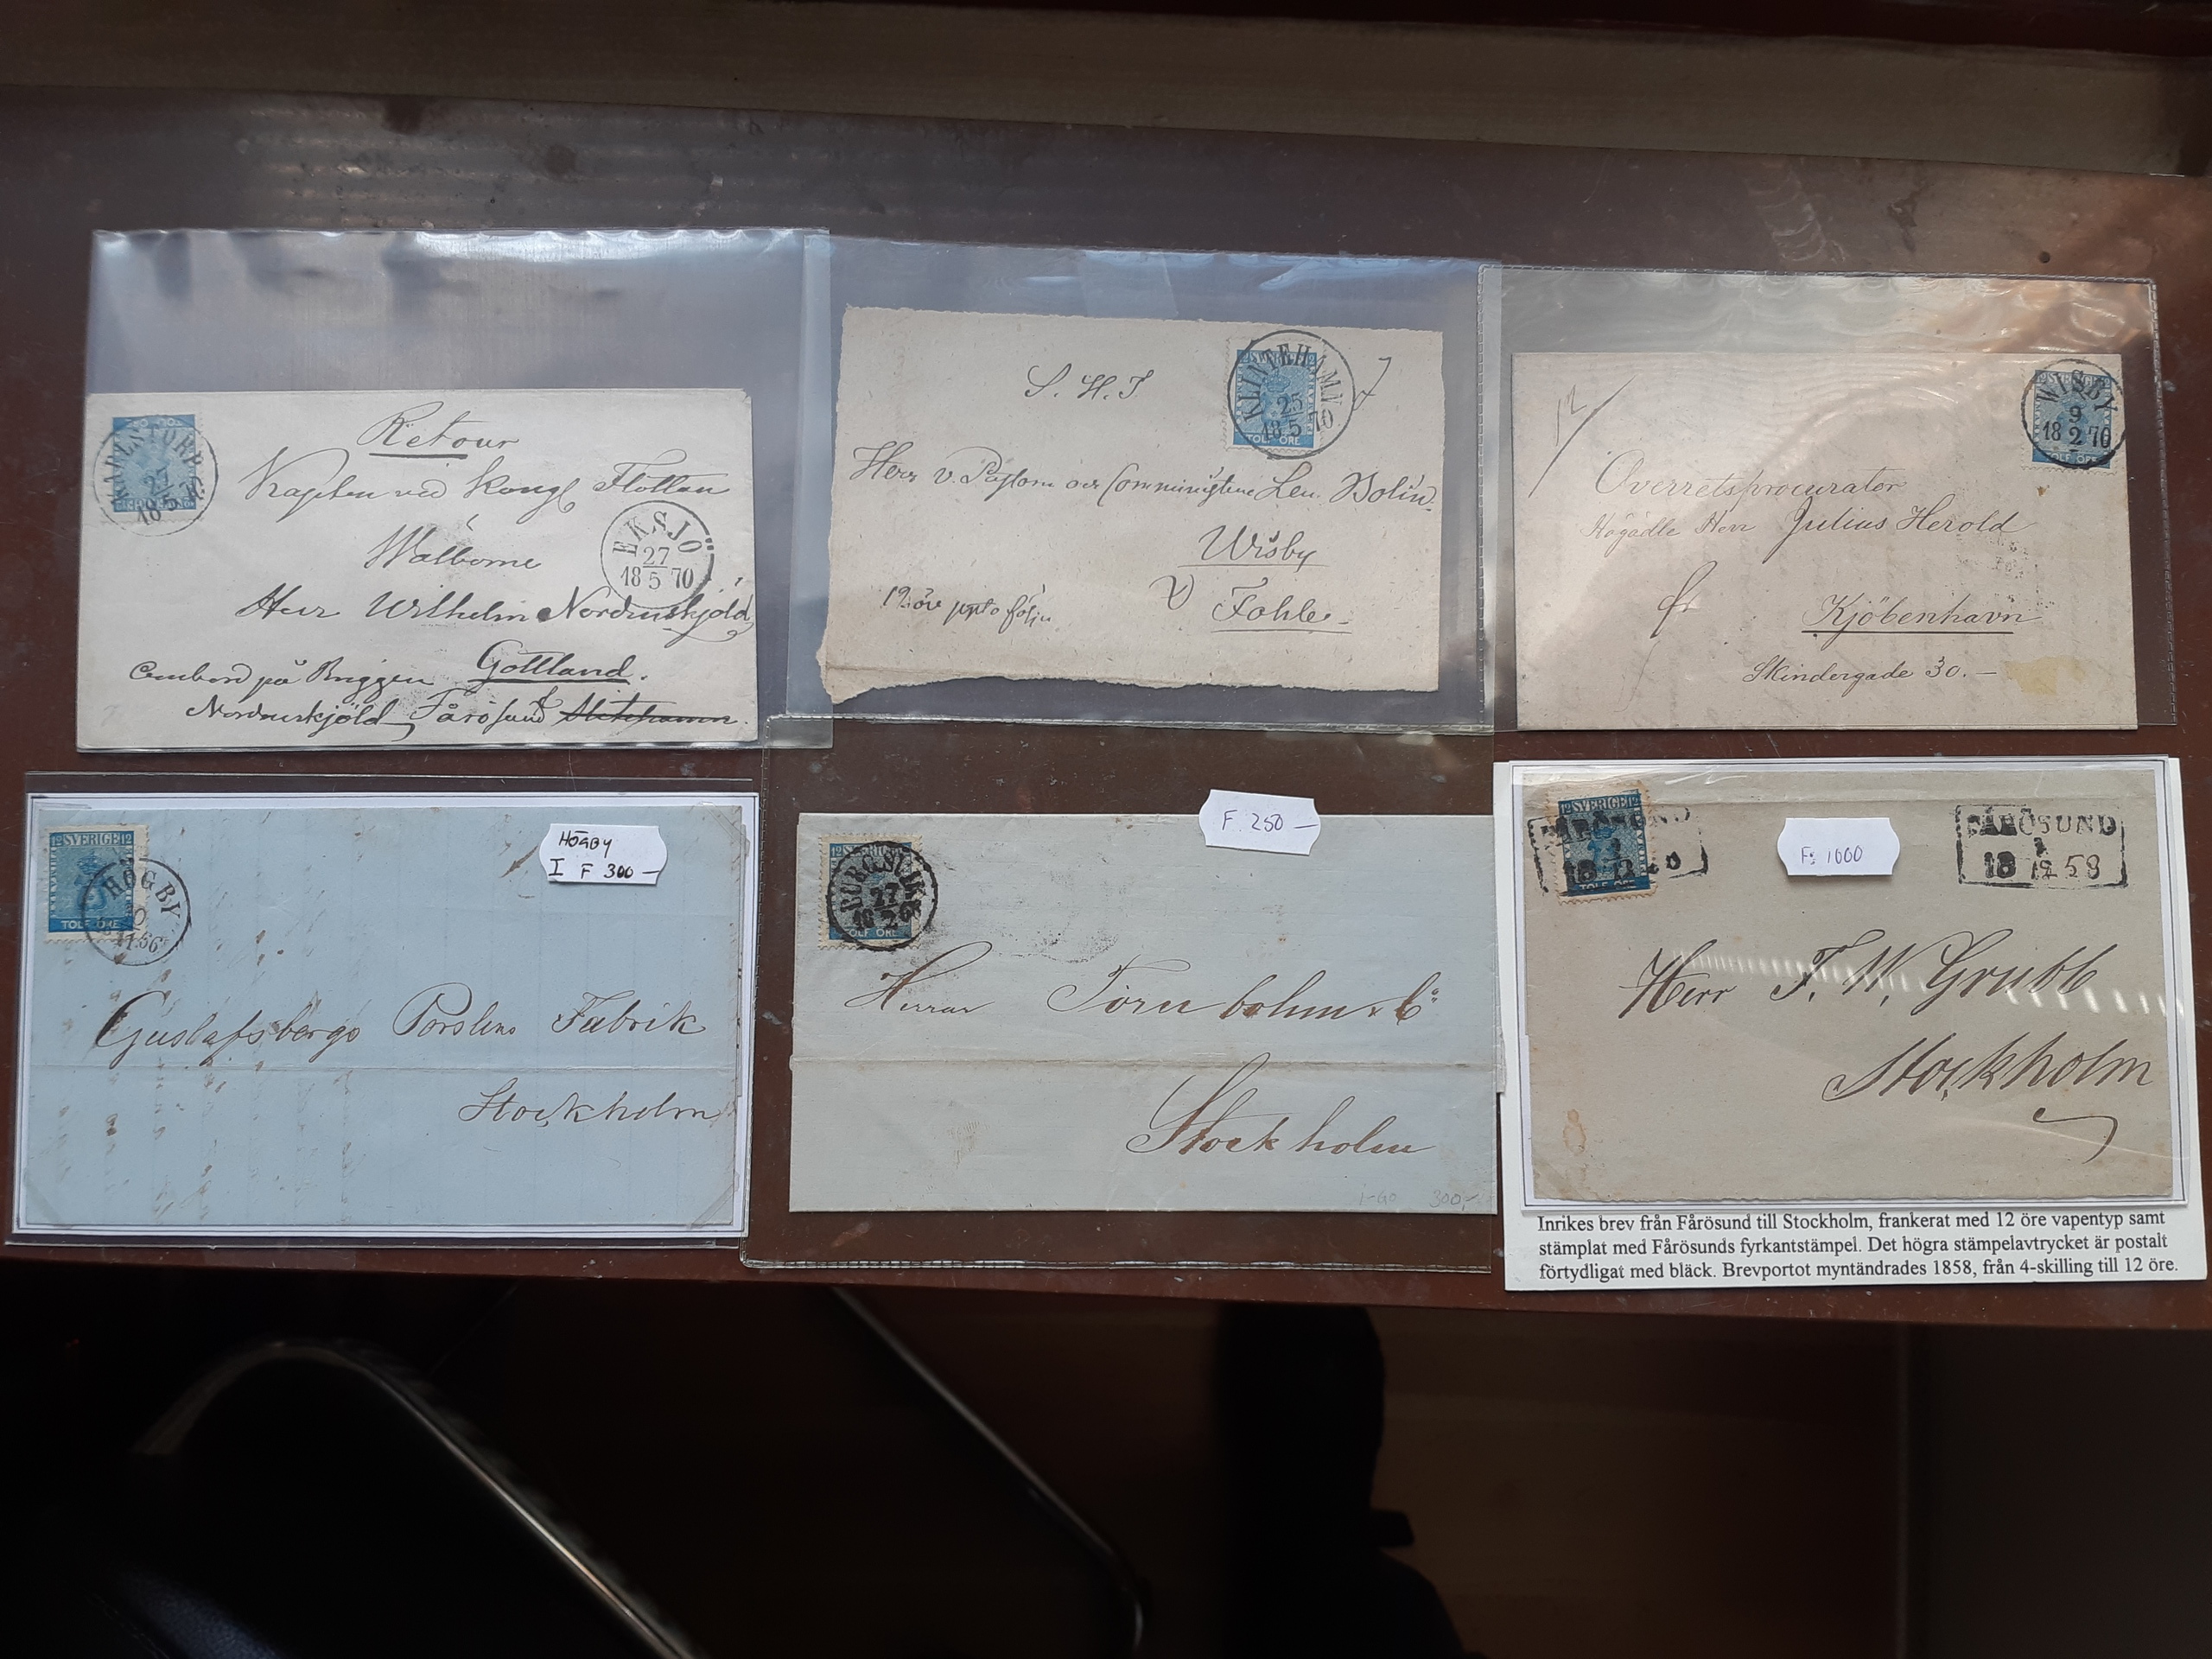 Retour
Kapten vid Kongl Flottan
Wälborne
Herr Wilhelm Nordenskjöld
Gottland.
Ombord på Briggen
Nordenskjöld, Fårösund Slitehamn.
EKSJÖ
27
18 5 70
S. H. T
KLINTEHAMN
25
18 5 70
SVERIGE
TOLF ÖRE
Herr v. Pastorn och Comministern Len. Bolin.
Wisby
Fohle.
12 öre
WISBY
9
18 2 70
TOLF ÖRE
12
Överretsprocurator
Högädle Herr Julius Herold
Kjöbenhavn
Skindergade 30.-
12 SVERIGE 12
TOLF ÖRE
HÖGBY
HÖGBY
I F 300 -
Gustafsbergs Porslins Fabrik
Stockholm
F 250 -
BURGSVIK
27
TOLF ÖRE
Herrar Törnbohm & Co
Stockholm
300,-
12 SVERIGE 12
FÅRÖSUND
TOLF ÖRE
F: 1000
FÅRÖSUND
18 12 58
Herr F. W. Grubb
Stockholm
Inrikes brev från Fårösund till Stockholm, frankerat med 12 öre vapentyp samt
stämplat med Fårösunds fyrkantstämpel. Det högra stämpelavtrycket är postalt
förtydligat med bläck. Brevportot myntändrades 1858, från 4-skilling till 12 öre.